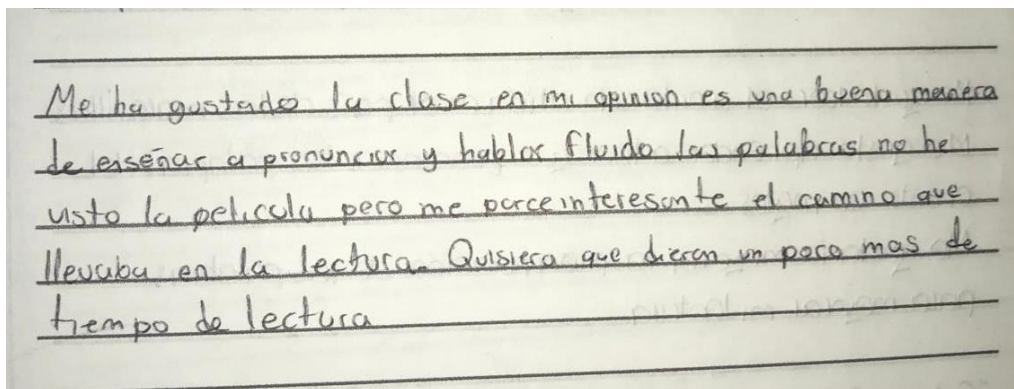 Me ha gustado la clase en mi opinion es una buena manera
de enseñar a pronunciar y hablar fluido las palabras no he
visto la pelicula pero me parce interesante el camino que
llevaba en la lectura. Quisiera que dieran un poco mas de
tiempo de lectura